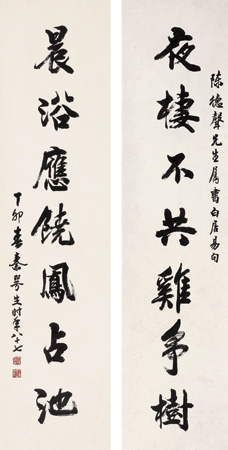 陳德聲先生屬書白居易句
夜棲不共雞爭樹
晨浴應饒鳳占池
丁卯春秦咢生時年八十七